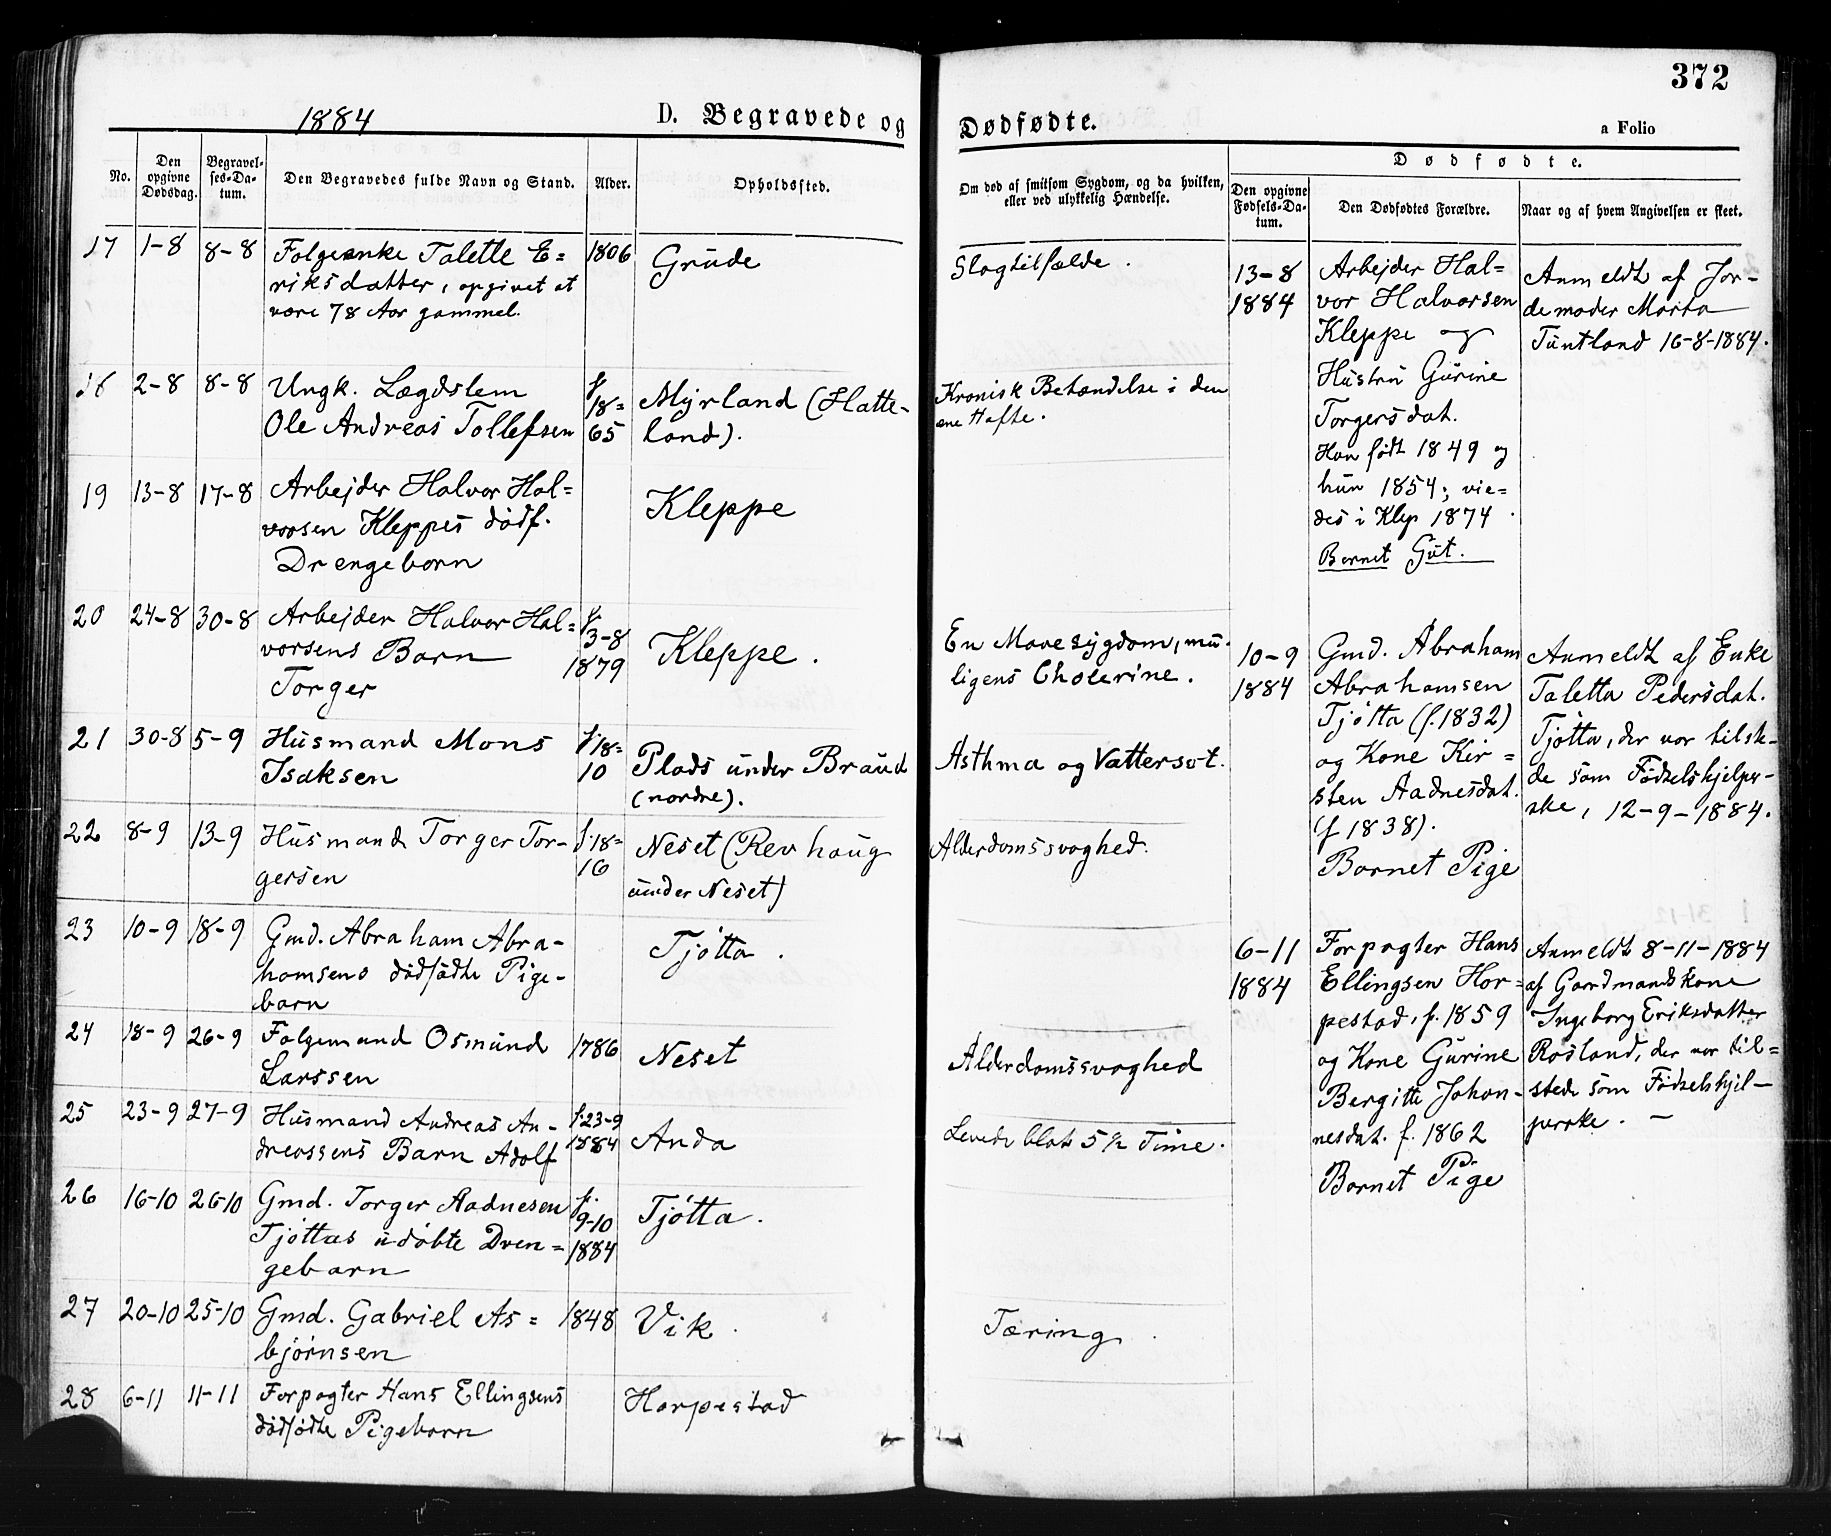 372
1884
D. Begravede og
Dødfødte.
a Folio
No.
Den opgivne Dødsdag.
Begravelses-Datum.
Den Begravedes fulde Navn og Stand.
Alder.
Opholdssted.
Om død af smitsom Sygdom, og da hvilken,
eller ved ulykkelig Hændelse.
Dødfødte.
Den opgivne Fødsels-Datum.
Den Dødfødtes Forældre.
Naar og af hvem Angivelsen er skeet.
17 1-8 8-8 Folgeenke Talette E= 1806 Grude Slagtilfælde.
riksdatter, opgivet at
være 78 Aar gammel.
18 2-8 8-8 Ungk. Lægdslem f. 18= Myrland (Hatte- Kronisk Betændelse i den
Ole Andreas Tollefsen 65 land). ene Hofte.
19 13-8 17-8 Arbejder Halvor Hal= Kleppe
vorsen Kleppes dødf.
Drengebarn
20 24-8 30-8 Arbejder Halvor Hal= f. 3-8 Kleppe. En Mavesygdom, mu-
vorsens Barn 1879 ligens Cholerine.
Torger
21 30-8 5-9 Husmand Mons f. 18= Plads under Braud Asthma og Vattersot.
Isaksen 10 (nordre).
22 8-9 13-9 Husmand Torger Tor- f. 18= Neset (Revhaug Alderdomssvaghed.
gersen 16 under Neset)
23 10-9 18-9 Gmd. Abraham Abra- Tjøtta.
hamsens dødfødte Pige-
barn
24 18-9 26-9 Folgemand Osmund 1786 Neset Alderdomssvaghed
Larssen
25 23-9 27-9 Husmand Andreas An- f. 23-9 Anda Levede blot 5 1/2 Time.
dreassens Barn Adolf 1884
26 16-10 26-10 Gmd. Torger Aadnesen f. 9-10 Tjøtta.
Tjøttas udøbte Dren= 1884
gebarn
27 20-10 25-10 Gmd. Gabriel As= 1848 Vik Tæring.
bjørnsen
28 6-11 11-11 Forpagter Hans Ellingsens Horpestad
dødfødte Pigebarn
13-8
1884
Arbejder Hal=
vor Halvorsen
Kleppe og
Hustru Gurine
Torgersdat.
Han født 1849 og
hun 1854; vie=
des i Klep 1874.
Barnet Gut.
Anmeldt af Jor-
demoder Marta
Tuntland 16-8-1884.
10-9
1884
Gmd. Abraham
Abrahamsen
Tjøtta (f. 1832)
og Kone Kir=
sten Aadnesdat.
(f 1838).
Barnet Pige
Anmeldt af Enke
Taletta Pedersdat.
Tjøtta, der var tilste-
de som Fødselshjelper-
ske, 12-9-1884.
6-11
1884
Forpagter Hans
Ellingsen Hor=
pestad, f. 1859
og Kone Gurine
Bergitte Johan-
nesdat. f. 1862
Barnet Pige
Anmeldt 8-11-1884
af Gaardmandskone
Ingeborg Eriksdatter
Rosland, der var til=
stede som Fødselshjel-
perske. -